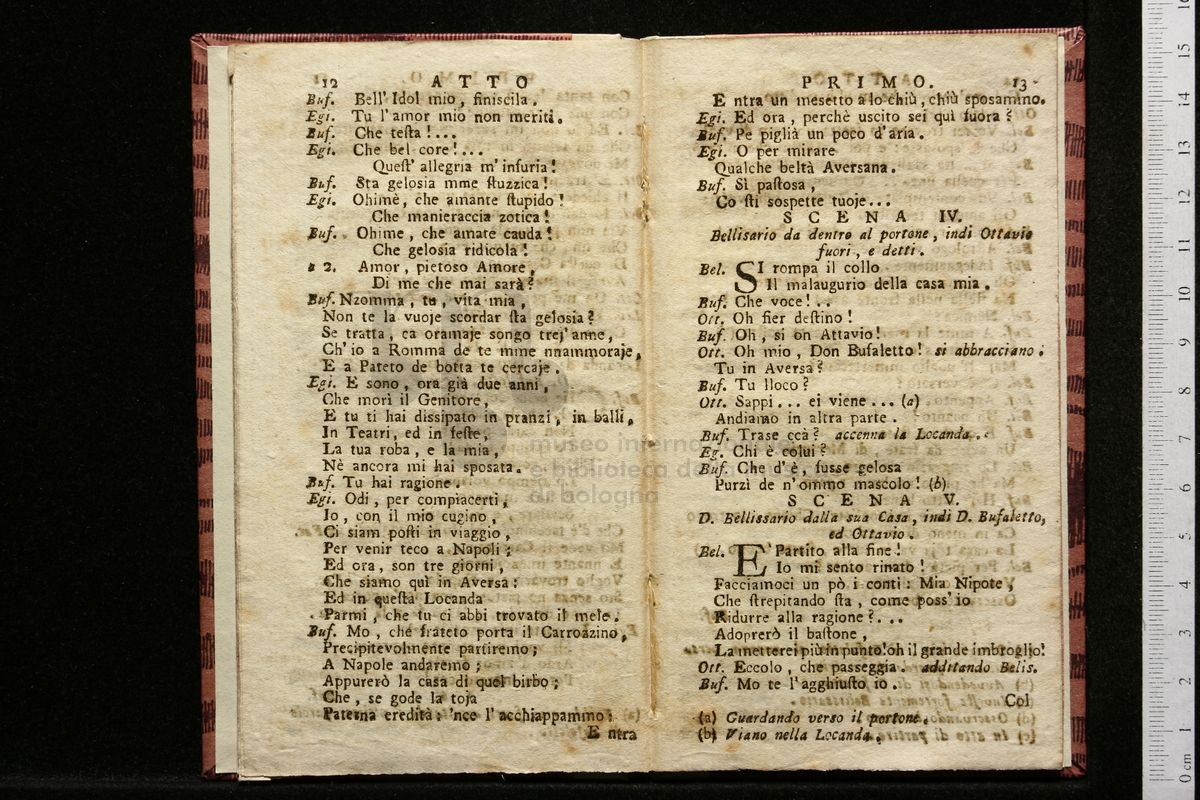 12 ATTO
Buf. Bell' Idol mio, finiscila.
Egi. Tu l'amor mio non meriti.
Buf. Che testa!...
Egi. Che bel core!...
Quest' allegria m' infuria!
Buf. Sta gelosia mme stuzzica!
Egi. Ohimè, che amante stupido!
Che manieraccia zotica!
Buf. Ohime, che amate cauda!
Che gelosia ridicola!
a 2. Amor, pietoso Amore,
Di me che mai sarà?
Buf. Nzomma, tu, vita mia,
Non te la vuoje scordar sta gelosia?
Se tratta, ca oramaje songo trej'anne,
Ch' io a Romma de te mme nnammoraje,
E a Pateto de botta te cercaje.
Egi. E sono, ora già due anni,
Che morì il Genitore,
E tu ti hai dissipato in pranzi, in balli,
In Teatri, ed in feste,
La tua roba, e la mia,
Nè ancora mi hai sposata.
Buf. Tu hai ragione.
Egi. Odi, per compiacerti,
Io, con il mio cugino,
Ci siam posti in viaggio,
Per venir teco a Napoli;
Ed ora, son tre giorni,
Che siamo quì in Aversa:
Ed in questa Locanda
Parmi, che tu ci abbi trovato il mele.
Buf. Mo, che frateto porta il Carrozzino,
Precipitevolmente partiremo;
A Napole andaremo;
Appurerò la casa di quel birbo;
Che, se gode la toja
Paterna eredità: 'nce l'acchiappammo:
E ntra
PRIMO. 13
E ntra un mesetto a lo chiù, chiù sposammo.
Egi. Ed ora, perchè uscito sei quì fuora?
Buf. Pe piglià un poco d'aria.
Egi. O per mirare
Qualche beltà Aversana.
Buf. Sì pastosa,
Co sti sospette tuoje...
SCENA IV.
Bellisario da dentro al portone, indi Ottavio
fuori, e detti.
Bel. SI rompa il collo
Il malaugurio della casa mia.
Buf. Che voce!..
Ott. Oh fier destino!
Buf. Oh, si on Attavio!
Ott. Oh mio, Don Bufaletto! si abbracciano.
Tu in Aversa?
Buf. Tu lloco?
Ott. Sappi... ei viene... (a)
Andiamo in altra parte.
Buf. Trase ccà? accenna la Locanda.
Eg. Chi è colui?
Buf. Che d'è, fusse gelosa
Purzì de n'ommo mascolo! (b)
SCENA V.
D. Bellissario dalla sua Casa, indi D. Bufaletto,
ed Ottavio.
Bel. E' Partito alla fine!
Io mi sento rinato!
Facciamoci un pò i conti: Mia Nipote,
Che strepitando sta, come poss' io
Ridurre alla ragione?...
Adoprerò il bastone,
La metterei più in punto! oh il grande imbroglio!
Ott. Eccolo, che passeggia. additando Belis.
Buf. Mo te l'agghiusto io.
Col
(a) Guardando verso il portone.
(b) Viano nella Locanda.
museo interna
e biblioteca de
di bologna
0 cm 1 2 3 4 5 6 7 8 9 10 11 12 13 14 15 16